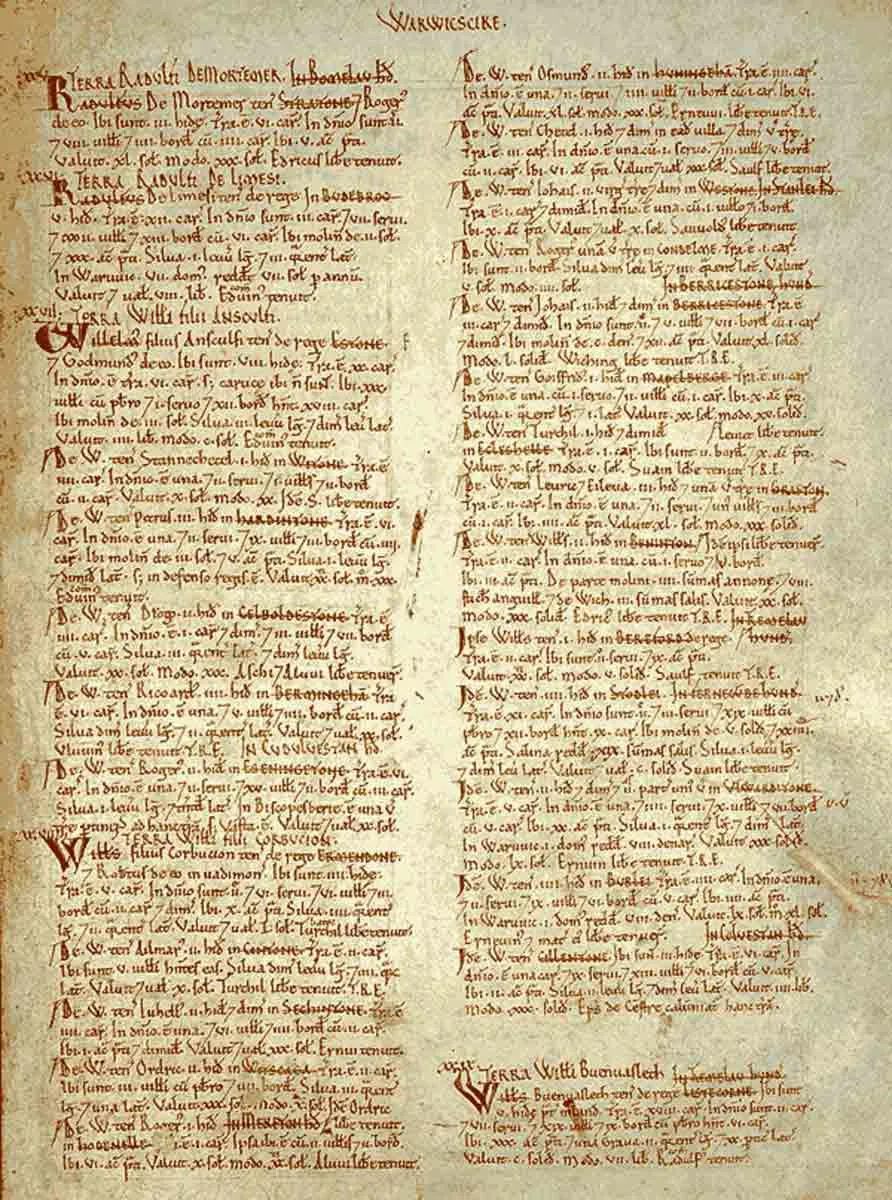 WARWICSCIRE.
TERRA RADULFI DE MORTEMER. In Bomelau Hd.
RADULFUS De Mortemer ten STRATONE 7 Roger
de eo. Ibi sunt .iii. hidę. Tra.ē.vi. car. In dnio sunt .ii.
7 viii. uilli 7 iii. bord cū .iiii. car. Ibi .v. ac pti.
Valuit .xl. sol. Modo .xxx. sol. Edricus libe tenuit.
TERRA RADULFI DE LIMESI.
RADULFUS de limesi ten de rege In BUDEBROC
v. hid. Tra.ē.xii. car. In dnio sunt .iii. car. 7 vii. serui.
7 xxii. uilli 7 xiii. bord cū .vi. car. Ibi molin de .ii. sol.
7 xxx. ac pti. Silua .i. leuu lg. 7 .iii. qrent lat.
In Waruuic .vii. dom. redde .vii. sol p annū.
Valuit 7 ual .viii. lib. Eduin tenuit.
xxvii. TERRA WILLI FILII ANSCULFI.
Willelm filius Ansculfi ten de rege ESTONE.
7 Godmund de eo. Ibi sunt .viii. hidę. Tra.ē.xx. car.
In dnio.ē. tra .vi. car. s; carucę ibi ñ sunt. Ibi .xxx.
uilli cū pbro 7 .i. seruo 7 xii. bord hñt .xviii. car.
Ibi molin de .iii. sol. Silua .iii. leuu lg. 7 dim leu lat.
Valuit .iiii. lib. modo .c. sol. Eduin tenuit.
De. W. ten Stannechetel .i. hid in WITONE. Tra.ē.
iiii. car. In dnio.ē.una. 7 ii. serui. 7 i. uills 7 ii. bord
cū .ii. car. Valuit .x. sol. modo .xx. Idē S. libe tenuit.
De. W. ten Petrus .iii. hid in HARDINTONE. Tra.ē.vi.
car. In dnio.ē.una. 7 ii. serui. 7 ix. uilli 7 iii. bord cū .iiii.
car. Ibi molin de .iii. sol. 7 v. ac pti. Silua .i. leuu lg.
7 dimid lat. s; in defenso regis.ē. Valuit .xx. sol. m .xxx.
Eduin tenuit.
De. W. ten Drogo .ii. hid in CELBOLDESTONE. Tra.ē.
iiii. car. In dnio.ē.i. car 7 dim. 7 iii. uilli 7 vii. bord
cū .v. car. Silua .iii. qrent lat. 7 dim leuu lg.
Valuit .xx. sol. Modo .xxx. Aschi 7 Aluui libe tenuer.
De. W. ten Ricoard .iiii. hid in BERMINGEHĀ. Tra
ē.vi. car. In dnio.ē.una. 7 v. uilli 7 iiii. bord cū .ii. car.
Silua dim leuu lg. 7 ii. qrent lat. Valuit 7 ual .xx. sol.
Vluuin libe tenuit T.R.E. IN CUDULVESTAN Hd
De. W. ten Roger .ii. hid in ESENINGETONE. Tra.ē.vi.
car. In dnio.ē.una. 7 ii. serui. 7 xv. uilli 7 ii. bord
Silua .i. leuu lg. 7 tntd lat. In Biscopesberie.ē. una v
tre ptineñs ad hanc tra. s; uasta.ē. Valuit 7 ual .xx. sol.
TERRA WILLI FILII CORBUCION.
Wills filius Corbucion ten de rege ERMENDONE.
7 Robtus de eo in uadimon. Ibi sunt .iiii. hidę.
Tra.ē.v. car. In dnio sunt .ii. 7 vi. serui. 7 vi. uilli 7 iii.
bord cū .ii. car 7 dim. Ibi .x. ac pti. Silua .iiii. qrent
lg. 7 ii. qrent lat. Valuit 7 ual .l. sol. Turchil libe tenuit.
De. W. ten Ailmar .ii. hid in CINTONE. Tra.ē.ii. car.
Ibi sunt .v. uilli hñtes eas. Silua dim leuu lg. 7 iiii. qrc
lat. Valuit 7 ual .x. sol. Turchil libe tenuit T.R.E.
De. W. ten Luhell .ii. hid 7 dim in SECHINTONE. Tra.ē
iiii. car. In dnio.ē.una. 7 vi. uilli 7 iiii. bord cū .ii. car.
Ibi .i. ac pti 7 dimid. Valuit 7 ual .xx. sol. Ernui tenuit.
De. W. ten Ordric .ii. hid in WITSCAGA. Tra.ē.ii. car.
Ibi sunt .iii. uilli cū pbro 7 vii. bord. Silua .iii. qrent
lg. 7 una lat. Valuit .xxx. sol. modo .x. sol. Idē Ordric
De. W. ten Roger .i. hid IN MERETON Hd. libe tenuit.
in HODENELLE. ē.i. car. Ipsa ibi.ē. cū .ii. uillis 7 ii. bord.
Ibi .vi. ac pti. Valuit .x. sol. modo .xx. sol. Aluui libe tenuit.
De. W. ten Osmund .ii. hid in HUNINGEHĀ. Tra.ē.iiii. car.
In dnio.ē.una. 7 ii. serui. 7 iiii. uilli 7 ii. bord cū .ii. car. Ibi .vi.
ac pti. Valuit .xl. sol. modo .xxx. sol. Ernuui libe tenuit T.R.E.
De. W. ten Chetel .i. hid 7 dim in ead uilla. 7 dim v tre.
Tra.ē.iii. car. In dnio.ē.una cū .i. seruo. 7 iii. uilli 7 v. bord
cū .i. car. Ibi .vi. ac pti. Valuit 7 ual .xxx. sol. Saulf libe tenuit.
De. W. ten Iohais .ii. uirg tre 7 dim in WESTONE. IN STANLEI Hd.
Tra.ē.i. car 7 dimid. In dnio.ē.una cū .i. uillo 7 i. bord.
Ibi .x. ac pti. Valuit 7 ual .x. sol. Sauuold libe tenuit.
De. W. ten Roger una v tre in CONDELME. Tra.ē.i. car.
Ibi sunt .ii. bord. Silua dim leuu lg. 7 iii. qrent lat. Valuit
v. sol. modo .iii. sol. IN BERRICESTONE HUND.
De. W. ten Iohais .ii. hid 7 dim in BERRICESTONE. Tra.ē
iii. car 7 dimid. In dnio sunt .ii. 7 v. uilli 7 vii. bord cū .i. car
7 dimid. Ibi molin de .v. den. 7 xii. ac pti. Valuit .xl. solid.
Modo .l. solid. Wiching libe tenuit T.R.E.
De. W. ten Goisfrid .i. hid in MAPELBERGE. Tra.ē.iii. car.
In dnio.ē.una. 7 ii. serui. 7 ii. uilli cū .i. car. 7 iii. ac pti.
Silua .i. qrent lg. 7 i. lat. Valuit .xx. sol. modo .xx. solid.
De. W. ten Turchil .i. hid 7 dimid Leuuic libe tenuit.
in ECLESHELLE. Tra.ē.i. car. Ibi sunt .ii. bord. 7 x. ac pti.
Valuit .xx. sol. modo .v. sol. Suain libe tenuit T.R.E.
De. W. ten Leuric 7 Eileua .iii. hid 7 una v tre in GRASTON.
Tra.ē.ii. car. In dnio.ē.una. 7 ii. serui. 7 un uills 7 ii. bord
cū .i. car. Ibi .iiii. ac pti. Valuit .xl. sol. modo .xxx. solid.
De. W. ten Wills .ii. hid in BENINTON. Idē ipsi libe tenuer.
Tra.ē.ii. car. In dnio.ē.una. 7 i. seruo 7 v. bord.
Ibi .iii. ac pti. De parte molini .iiii. sūmas annonę. 7 viii.
stich anguill. 7 de Wich .iii. sūmas salis. Valuit .xx. sol.
Modo .xxx. solid. Edric libe tenuit T.R.E. IN REMELAU
Ipse Wills ten .i. hid in BEREFORD de rege. HUND.
Tra.ē.ii. car. Ibi sunt .ii. serui. 7 ix. ac pti.
Valuit .xx. sol. modo .v. solid. Saulf tenuit T.R.E.
Idē. W. ten .iiii. hid in STODLEI. IN FERNECUBE HUND.
Tra.ē.xi. car. In dnio sunt .ii. 7 iii. serui 7 xix. uilli cū
pbro 7 xii. bord hñt .ix. car. Ibi molin de .v. solid. 7 xxiiii.
ac pti. Salina redd .xix. sūmas salis. Silua .i. leuu lg.
7 dim leu lat. Valuit 7 ual .c. solid. Suain libe tenuit.
Idē. W. ten .ii. hid 7 dim 7 .ii. part uni v in WLWARDITONE.
Tra.ē.v. car. In dnio.ē.una. 7 iiii. serui. 7 x. uilli 7 vii. bord
cū .v. car. Ibi .xx. ac pti. Silua .i. qrent lg. 7 dim lat.
In Waruuic .i. dom redd .viii. denar. Valuit .xx. solid.
Modo .lx. sol. Ernuin libe tenuit T.R.E.
Idē. W. ten .iii. hid in BURLEI. Tra.ē.iii. car. In dnio.ē.una.
7 ii. serui. 7 ix. uilli 7 vi. bord cū .iii. car. Ibi .xx. ac pti.
In Waruuic .i. dom redd .viii. den. Valuit .lx. sol. m .xl. sol.
Ernuuin 7 mat ei libe tenuer. IN COLVESTAN Hd.
Idē. W. ten CILLENTONE. Ibi sunt .iii. hidę. Tra.ē.vi. car. In
dnio.ē.una car. 7 ix. serui. 7 xiii. uilli 7 vi. bord cū .v. car.
Ibi .ii. ac pti. Silua .ii. leuu lg. 7 dim leu lat. Valuit .iiii. lib.
Modo .xxx. solid. Eps de Cestre caluniat hanc tra.
TERRA WILLI BUENVASLETH. IN REMELAU HUND.
Wills Buenuasleth ten de rege LISTECORNE. Ibi sunt
v. hidę. Tra.ē.xviii. car. In dnio sunt .ii. car.
7 viii. serui. 7 xix. uilli 7 ix. bord cū pbro hñt .vi. car.
Ibi .xxx. ac pti. 7 una Graua .ii. qrent lg. 7 xx. ptic lat.
Valuit .c. solid. Modo .vii. lib. Radulf tenuit.